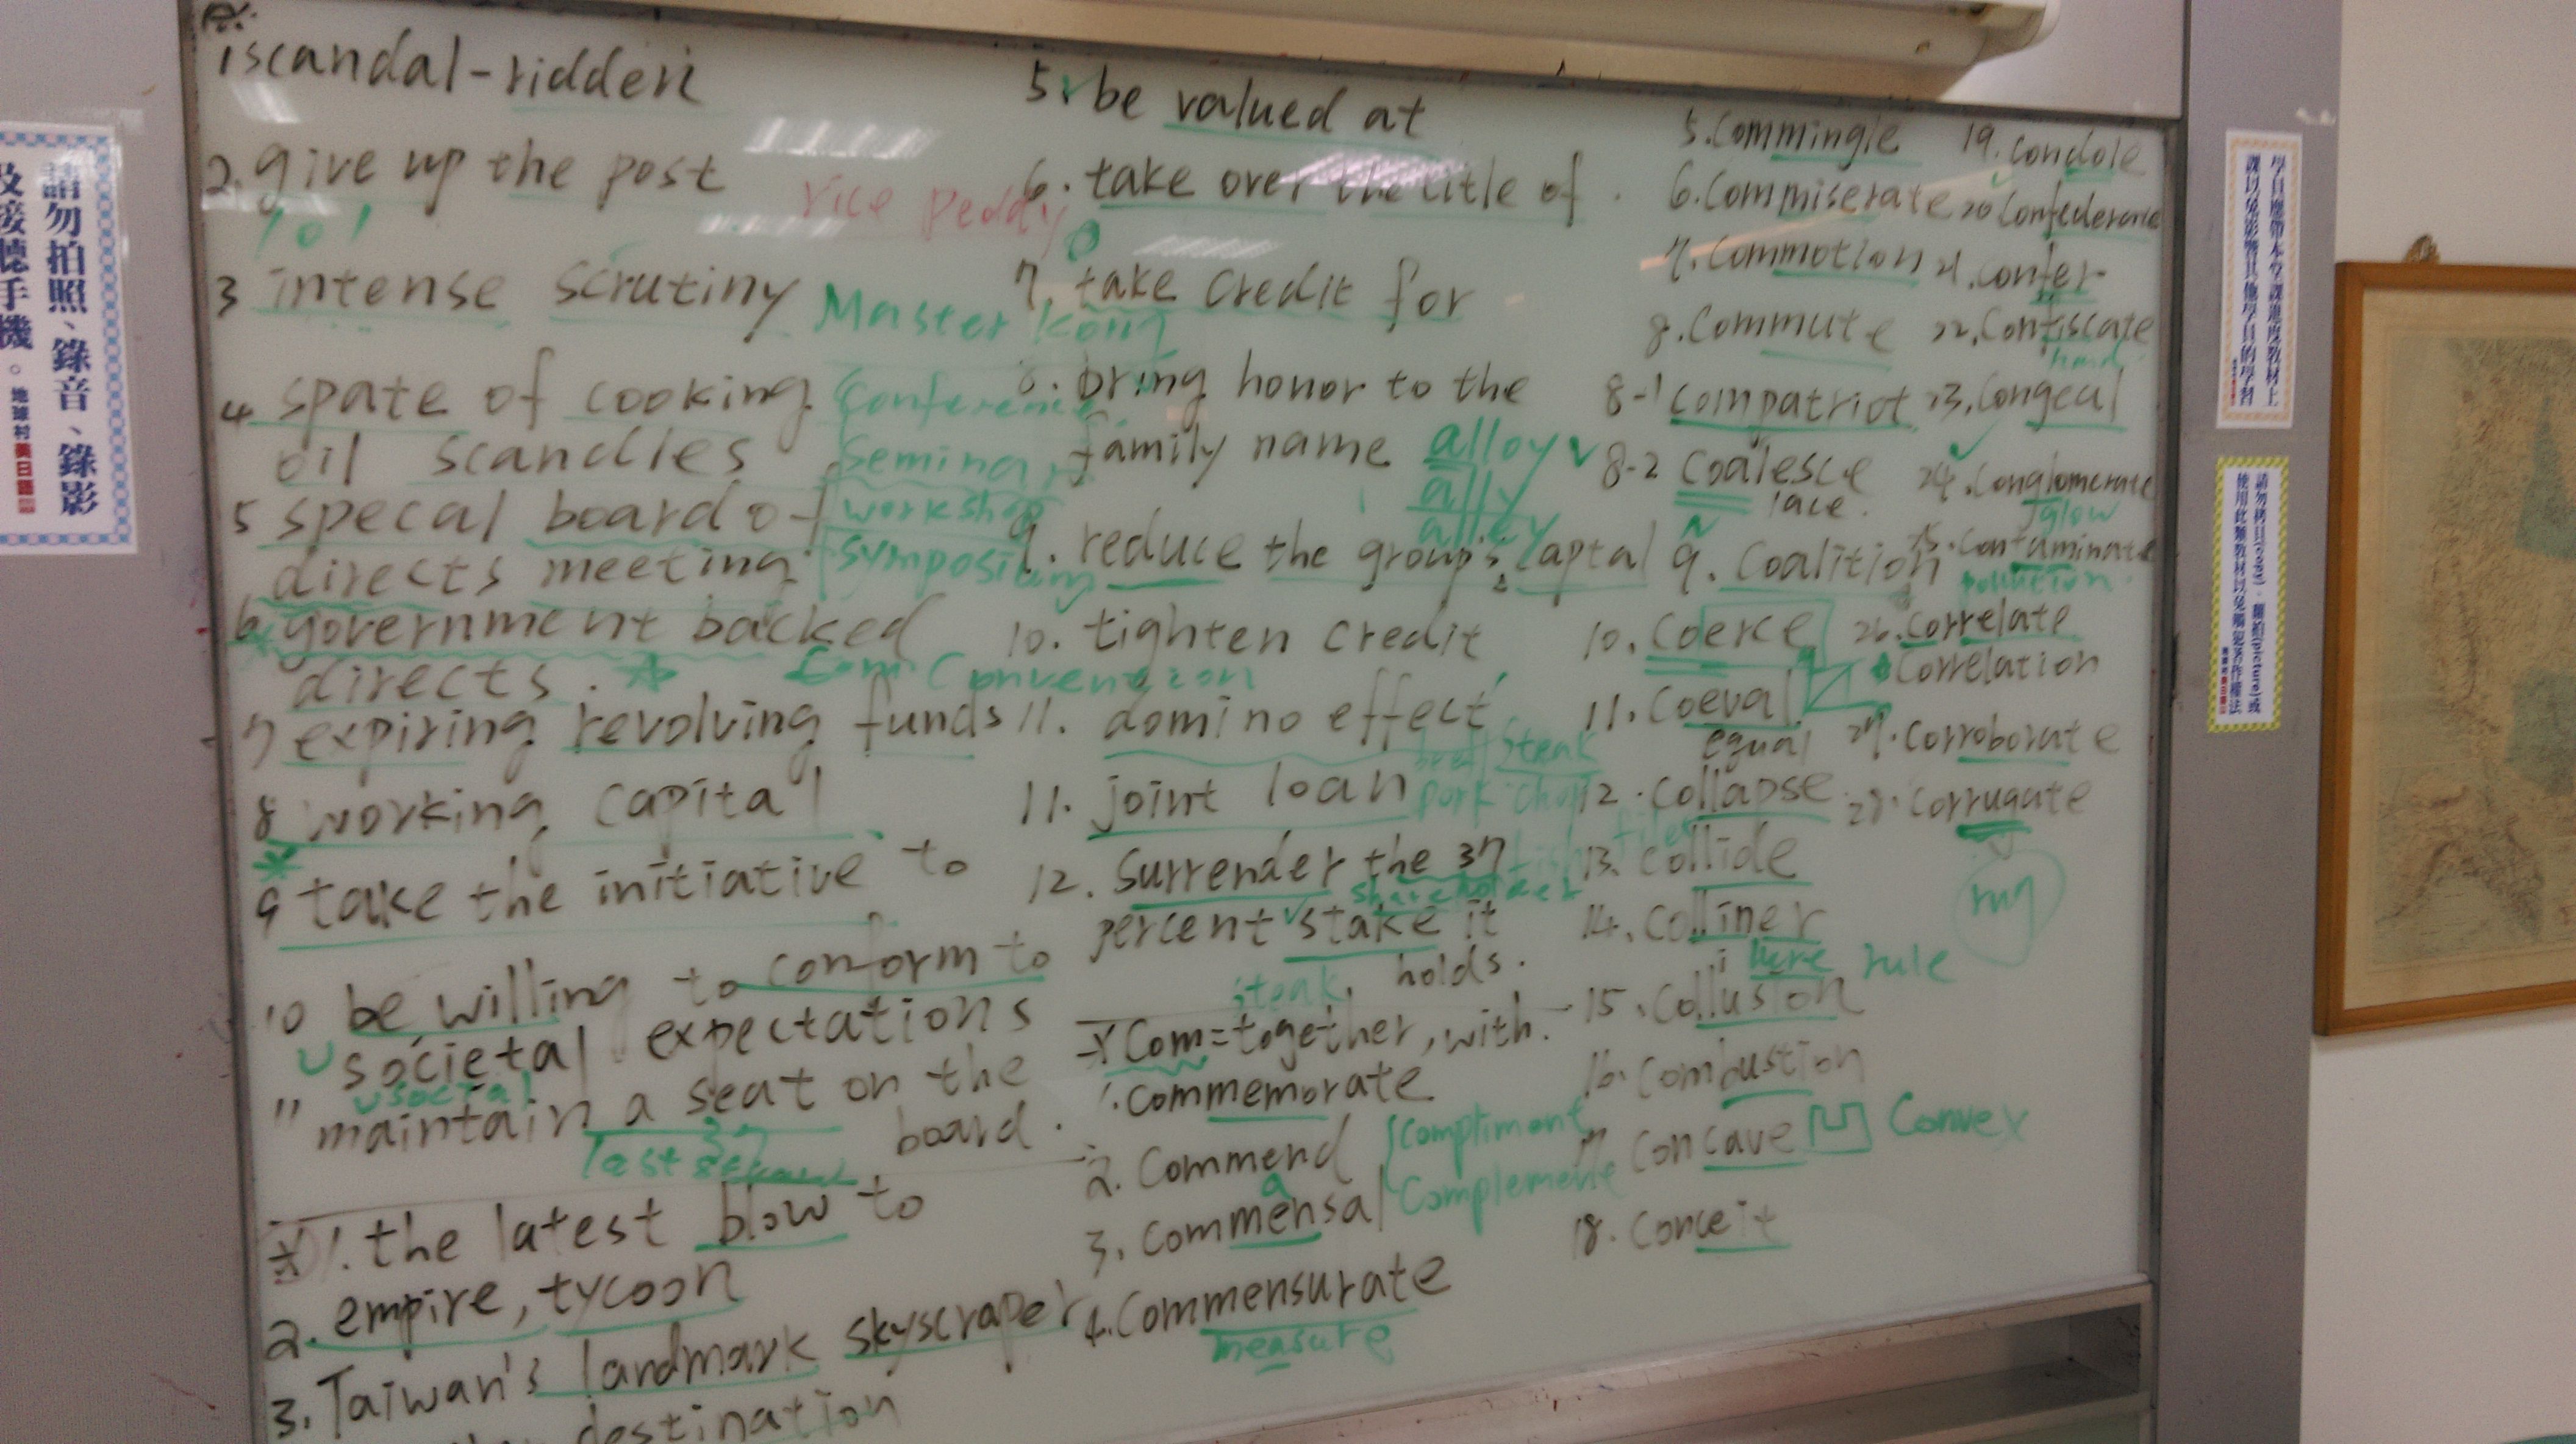 請勿拍照、錄音、錄影
及接聽手機。地球村美日語
1 scandal-ridden
2. give up the post
101
3 intense scrutiny
4 spate of cooking
oil scandles
5 specal board of
directs meeting
6 government backed
directs.
7 expiring revolving funds
8 working capital
9 take the initiative to
10 be willing to conform to
societal expectations
social
11 maintain a seat on the
board.
37
last
1. the latest blow to
2. empire, tycoon
3. Taiwan's landmark skyscraper
destination
vice peddy
Master Kong
Conference
Seminar
workshop
symposium
Com Convention
5. be valued at
6. take over the title of
7. take credit for
8. bring honor to the
family name
alloy
ally
alley
9. reduce the group's captal
10. tighten credit
11. domino effect
steak
11. joint loan
pork chop
12. Surrender the 37
fish filet
shareholder
percent stake it
holds.
steak
Com = together, with.
1. commemorate
2. Commend
compliment
Complement
3. commensal
4. Commensurate
measure
5. Commingle
6. Commiserate
7. Commotion
8. Commute
8-1 Compatriot
8-2 Coalesce
lace.
9. Coalition
10. Coerce
11. Coeval
equal
12. Collapse
13. Collide
14. Colliner
i line rule
15. Collusion
16. Combustion
17 Concave Convex
18. Conceit
19. Condole
20 Confederate
21. Confer
22. Confiscate
23. Congeal
24. Conglomerate
glow
25. Contaminate
pollution
26. Correlate
Correlation
27. Corroborate
28. Corrugate
rug
學員應帶本堂課進度教材上
課以免影響其他學員的學習
請勿拷貝(copy)、翻拍(picture)或